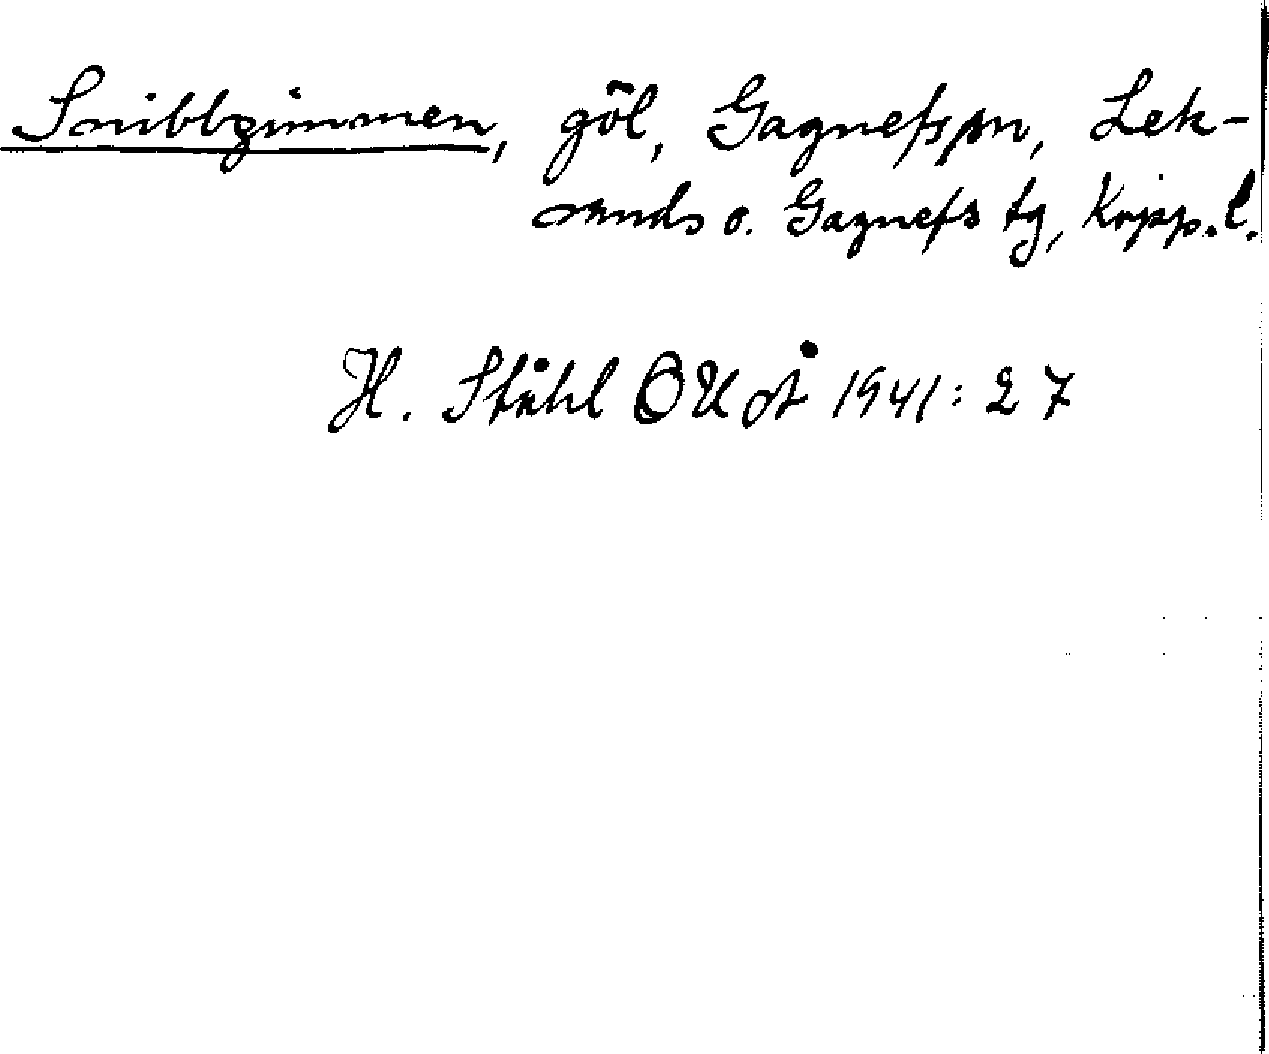 Snibbgimmen, göl, Gagnefs sn, Lek-
sands o. Gagnefs tg, Kopp. l.
H. Ståhl OUÅ 1941: 27